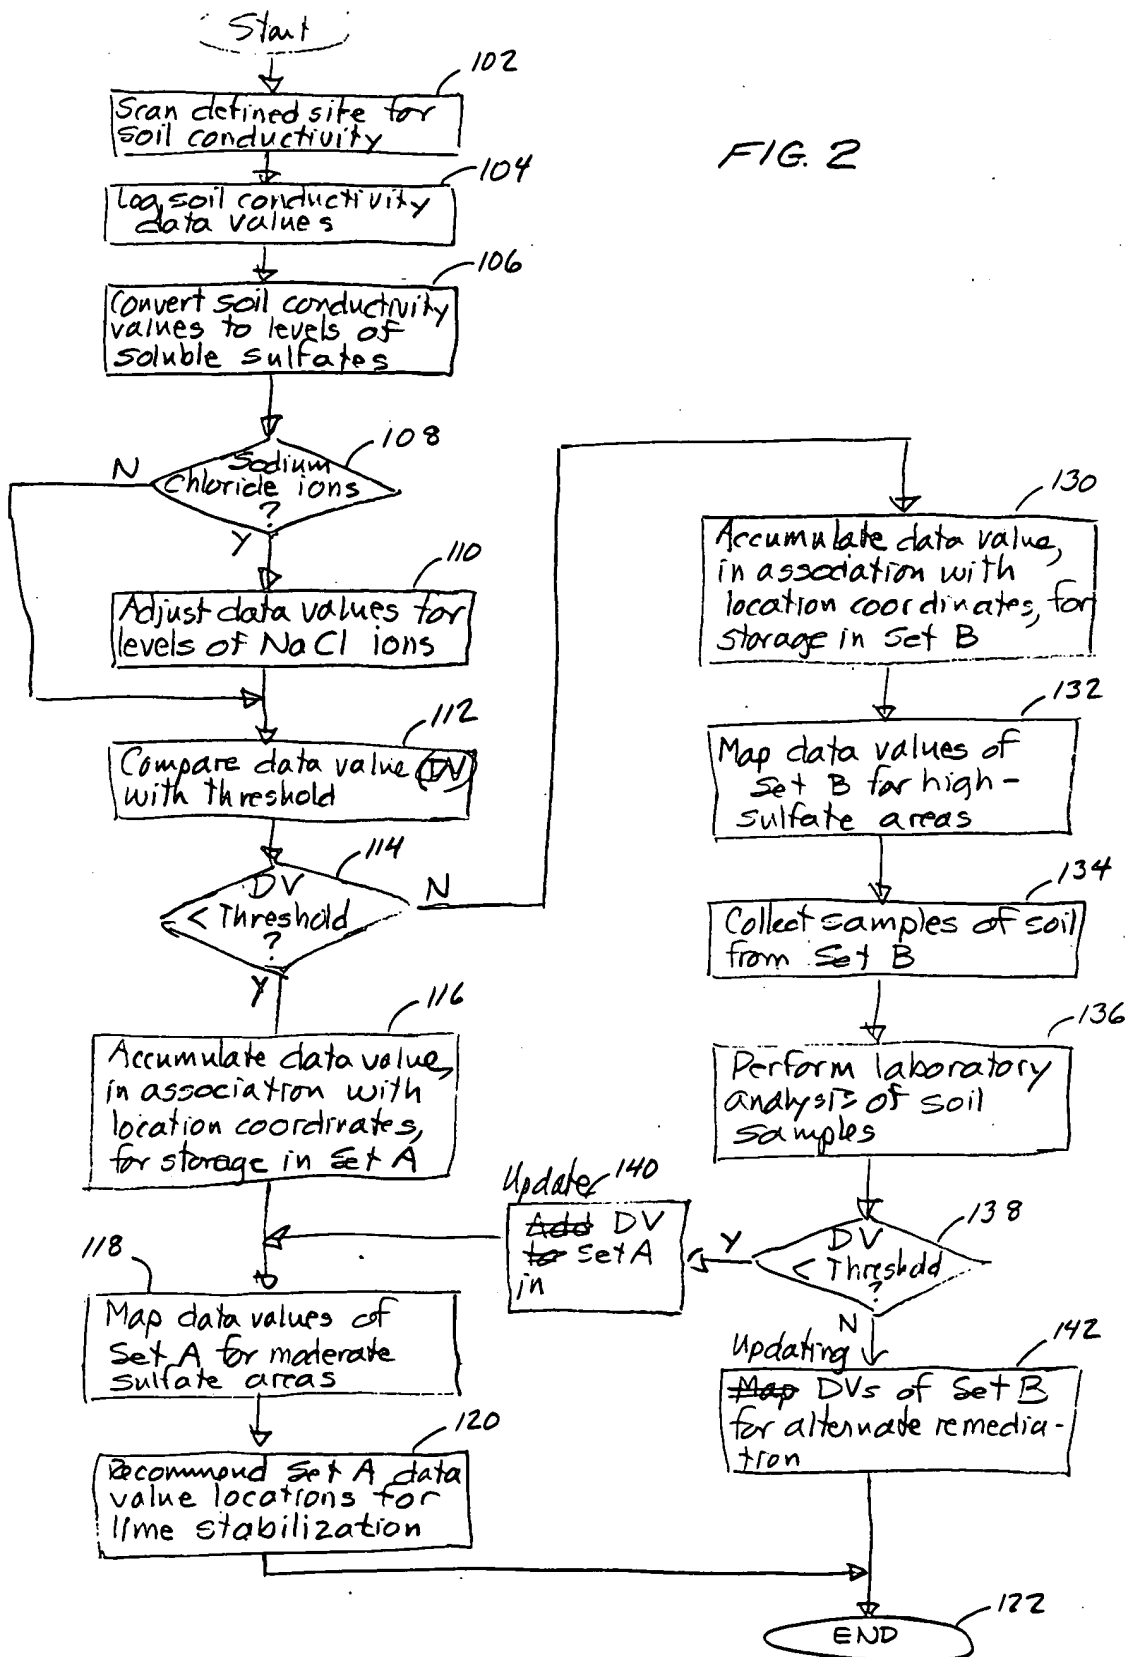 Start
102
Scan defined site for
soil conductivity
FIG. 2
104
Log soil conductivity
data values
106
Convert soil conductivity
values to levels of
soluble sulfates
108
N
Sodium
Chloride ions
?
Y
110
Adjust data values for
levels of NaCl ions
112
Compare data value (DV)
with threshold
114
DV
< Threshold
?
N
Y
116
Accumulate data value,
in association with
location coordinates,
for storage in Set A
118
Map data values of
Set A for moderate
sulfate areas
120
Recommend Set A data
value locations for
lime stabilization
130
Accumulate data value,
in association with
location coordinates, for
storage in Set B
132
Map data values of
Set B for high-
sulfate areas
134
Collect samples of soil
from Set B
136
Perform laboratory
analysis of soil
samples
138
DV
< Threshold
?
Y
N
Update 140
Add DV
to Set A
in
Updating
142
Map DVs of Set B
for alternate remedia-
tion
122
END